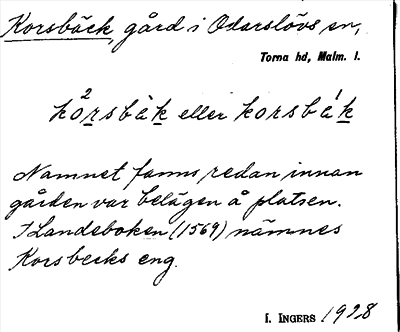 Korsbäck, gård i Odarslövs sn,
Torna hd, Malm. l.
ko²rsbàk eller korsbák
Namnet fanns redan innan
gården var belägen å platsen.
I Landeboken (1569) nämnes
Korsbecks eng.
I. INGERS 1928